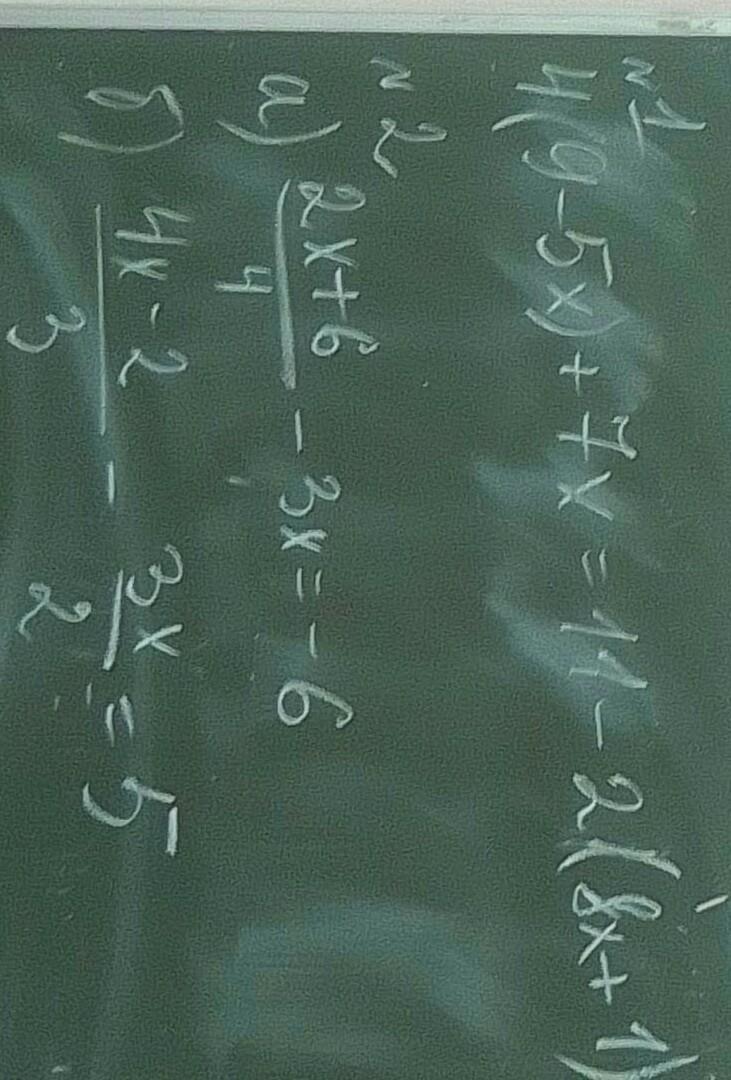 №1
4(9-5x)+7x=11-2(8x+1)
№2
а) (2x+6)/4 - 3x = -6
б) (4x-2)/3 - 3x/2 = 5